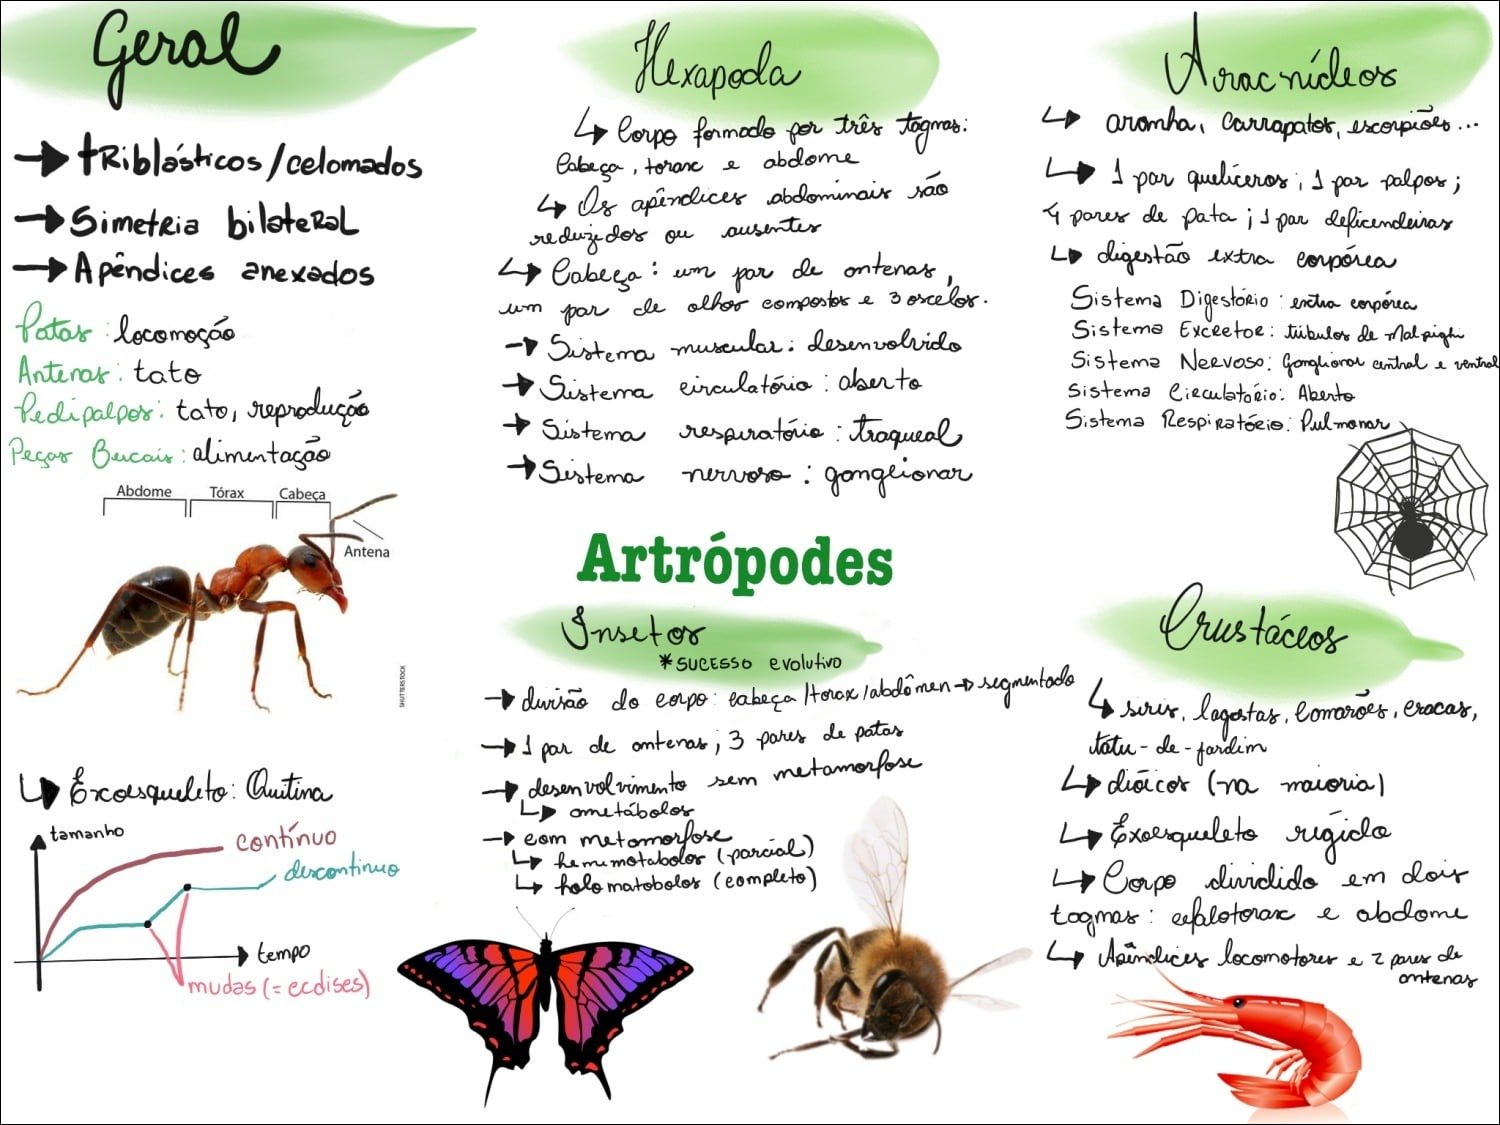 Geral
→ tRiblásticos/celomados
→ Simetria bilateral
→ Apêndices anexados
Patas: locomoção
Antenas: tato
Pedipalpos: tato, reprodução
Peças Bucais: alimentação
Abdome Tórax Cabeça
Antena
SHUTTERSTOCK
↳ Exoesqueleto: Quitina
tamanho
contínuo
descontínuo
tempo
mudas (= ecdises)
Hexapoda
↳ Corpo formado por três tagmas:
Cabeça, torax e abdome
↳ Os apêndices abdominais são
reduzidos ou ausentes
↳ Cabeça: um par de antenas,
um par de olhos compostos e 3 oscelos.
→ Sistema muscular: desenvolvido
→ Sistema circulatório: aberto
→ Sistema respiratório: traqueal
→ Sistema nervoso: ganglionar
Artrópodes
Insetos
*SUCESSO evolutivo
→ divisão do corpo: cabeça/torax/abdômen → segmentado
→ 1 par de antenas; 3 pares de patas
→ desenvolvimento sem metamorfose
↳ ametábolos
→ com metamorfose
↳ hemimetabolos (parcial)
↳ holometabolos (completo)
Aracnídeos
↳ aranha, carrapatos, escorpiões...
↳ 1 par quelíceros; 1 par palpos;
4 pares de pata; 1 par deficendeiras
↳ digestão extra corpórea
Sistema Digestório: extra corpórea
Sistema Excretor: túbulos de Malpighi
Sistema Nervoso: Ganglionar central e ventral
Sistema Circulatório: Aberto
Sistema Respiratório: Pulmonar
Crustáceos
↳ siris, lagostas, camarões, cracas,
tatu-de-jardim
↳ dióicos (na maioria)
↳ Exoesqueleto rígido
↳ Corpo dividido em dois
tagmas: cefalotorax e abdome
↳ Apêndices locomotores e 2 pares de
antenas